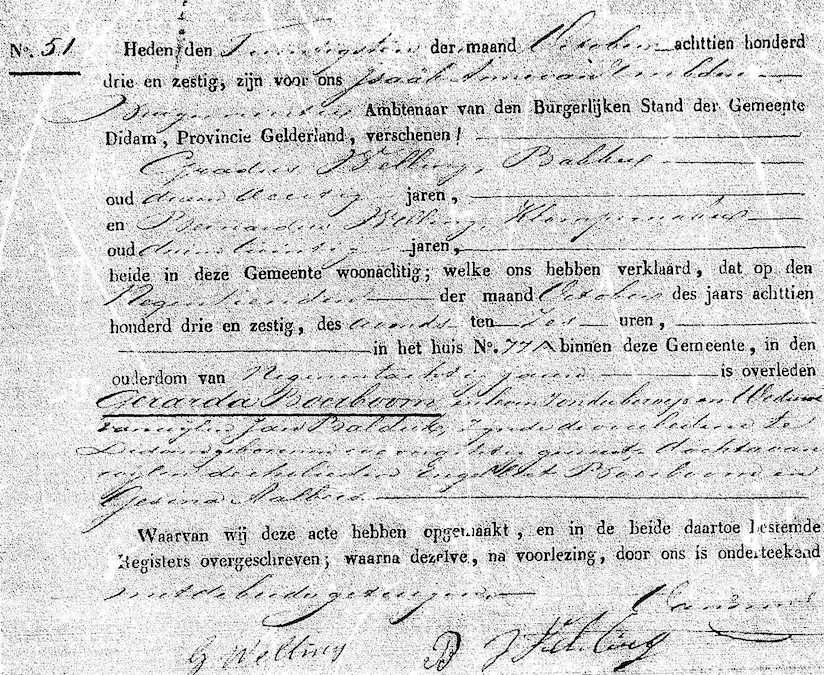 No. 51 Heden den Twintigsten der maand October achttien honderd
drie en zestig, zijn voor ons Isaäk Anne van
Burgemeester Ambtenaar van den Burgerlijken Stand der Gemeente
Didam, Provincie Gelderland, verschenen!
Gradus Welling, Bakker
oud jaren,
en Bernardus Welling, Klompenmaker
oud jaren,
beide in deze Gemeente woonachtig; welke ons hebben verklaard, dat op den
Negentienden der maand October des jaars achttien
honderd drie en zestig, des avonds ten zes uren,
in het huis No. 77A binnen deze Gemeente, in den
ouderdom van Negenentachtig jaren is overleden
Gerarda Boerboom zonder beroep en Weduwe
van wijlen Jan zijnde de overledene te
Didam geboren gemeente dochter van
wijlen de echtelieden Engelbert Boerboom en
Gesina Aalbers
Waarvan wij deze acte hebben opgemaakt, en in de beide daartoe bestemde
Registers overgeschreven; waarna dezelve, na voorlezing, door ons is onderteekend
met de beide getuigen
G Welling B Welling